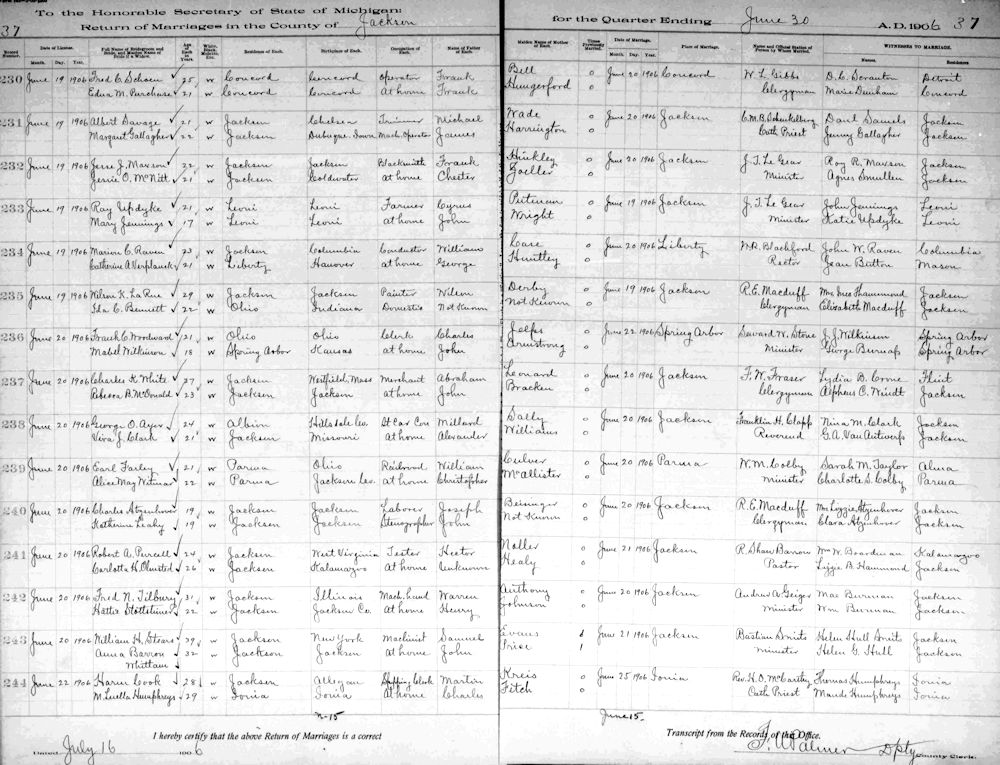 To the Honorable Secretary of State of Michigan:
37 Return of Marriages in the County of Jackson for the Quarter Ending June 30 A.D. 1906 37
Record Number. Date of License. Month. Day. Year. Full Name of Bridegroom and Bride, and Maiden Name of Bride if a Widow. Age of Each in Years. White, Black, Mulatto, Etc. Residence of Each. Birthplace of Each. Occupation of Each. Name of Father of Each. Maiden Name of Mother of Each. Times Previously Married. Date of Marriage. Month. Day. Year. Place of Marriage. Name and Official Station of Person by Whom Married. WITNESSES TO MARRIAGE. Names. Residence
230 June 19 1906 Fred C. Schoen 25 w Concord Concord Operator Frank Bell 0 June 20 1906 Concord W. L. Gibbs D. C. Scranton Detroit
Edna M. Purchase 21 w Concord Concord At home Frank Hungerford 0 Clergyman Marie Dunham Concord
231 June 19 1906 Albert Savage 21 w Jackson Chelsea Trimmer Michael Wade 0 June 20 1906 Jackson C.M.B. Schenkelberg Daul Daniels Jackson
Margaret Gallagher 22 w Jackson Dubuque, Iowa Mach. Operator James Harrington 0 Cath Priest Jenny Gallagher Jackson
232 June 19 1906 Jesse J. Maxson 22 w Jackson Jackson Blacksmith Frank Hinkley 0 June 20 1906 Jackson J. T. Le Gear Roy R. Maxson Jackson
Jessie O. McNitt 21 w Jackson Coldwater at home Chester Goeller 0 Minister Agnes Smullen Jackson
233 June 19 1906 Ray Updyke 21 w Leoni Leoni Farmer Cyrus Putman 0 June 19 1906 Jackson J. T. Le Gear John Jennings Leoni
Mary Jennings 17 w Leoni Leoni at home John Wright 0 Minister Katie Updyke Leoni
234 June 19 1906 Marion C. Raven 23 w Jackson Columbia Conductor William Case 0 June 20 1906 Liberty W.R. Blachford John W. Raven Columbia
Catherine A Verplanck 21 w Liberty Hanover at home George Huntley 0 Rector Jean Button Mason
235 June 19 1906 Wilson K. La Rue 29 w Jackson Jackson Painter Wilson Derby 0 June 19 1906 Jackson R. E. Macduff Mrs Jackson
Ida C. Bennett 22 w Ohio Indiana Domestic Not Known Not Known 0 Clergyman Elizabeth Macduff Jackson
236 June 20 1906 Frank C Woodward 21 w Ohio Ohio Clerk Charles 0 June 22 1906 Spring Arbor Seward W. Stone J. J. Wilkinson Spring Arbor
Mabel Wilkinson 18 w Spring Arbor Kansas at home John Armstrong 0 Minister George Burnap Spring Arbor
237 June 20 1906 Charles K White 37 w Jackson Westfield, Mass Merchant Abraham Leonard 0 June 20 1906 Jackson F. W. Fraser Lydia B. Crone Flint
Rebecca B. McDonald 23 w Jackson Jackson at home John Bracken 0 Clergyman Alpheus C. Windt Jackson
238 June 20 1906 George O. Ayer 24 w Albion Hillsdale Co. St Car Con Millard Dally 0 June 20 1906 Jackson Franklin H. Clapp Nina M. Clark Jackson
Vera J. Clark 21 w Jackson Missouri At home Alexander Williams 0 Reverend G. A. Van Antwerp Jackson
239 June 20 1906 Earl Farley 21 w Parma Ohio Railroad William Culver 0 June 20 1906 Parma W. M. Colby Sarah M. Taylor Alma
Alice May Witmar 22 w Parma Jackson Co. at home Christopher McAllister 0 Minister Charlotte S. Colby Parma
240 June 20 1906 Charles Atzenhover 19 w Jackson Jackson Laborer Joseph Beisinger 0 June 20 1906 Jackson R. E. Macduff Mrs Lizzie Atzenhover Jackson
Katherine Leahy 19 w Jackson Jackson Stenographer John Not Known 0 Clergyman Clara Atzenhover Jackson
241 June 20 1906 Robert A. Purcell 24 w Jackson West Virginia Tester Hector Noller 0 June 21 1906 Jackson R. Shaw Barrow Mrs W. Boardman Kalamazoo
Carlotta H. Olmsted 26 w Jackson Kalamazoo At home Unknown Healy 0 Pastor Lizzie B Hammond Jackson
242 June 20 1906 Fred N. Tilbury 31 w Jackson Illinois Mach. hand Warren Anthony 0 June 20 1906 Jackson Andrew A. Geiger Mae Burman Jackson
Hattie Stottleimer 22 w Jackson Jackson Co. At home Henry Johnson 0 minister Wm Burman Jackson
243 June 20 1906 William H. Stears 29 w Jackson New York Machinist Samuel Evans 1 June 21 1906 Jackson Bastian Smits Helen Hull Smits Jackson
Anna Barron 32 w Jackson Jackson At home John Price 1 minister Helen G. Hull Jackson
Whittam
244 June 22 1906 Harm Cook 28 w Jackson Allegan Shipping Clerk Martin Kreis 0 June 25 1906 Ionia Rev. H. O. McCarthy Thomas Humphreys Ionia
M. Luella Humphreys 29 w Ionia Ionia At home Charles Fitch 0 Cath Priest Maude Humphreys Ionia
n-15 June 15.
I hereby certify that the above Return of Marriages is a correct Transcript from the Records of this Office.
Dated July 16 1906 F. A. Palmer Dpty County Clerk.